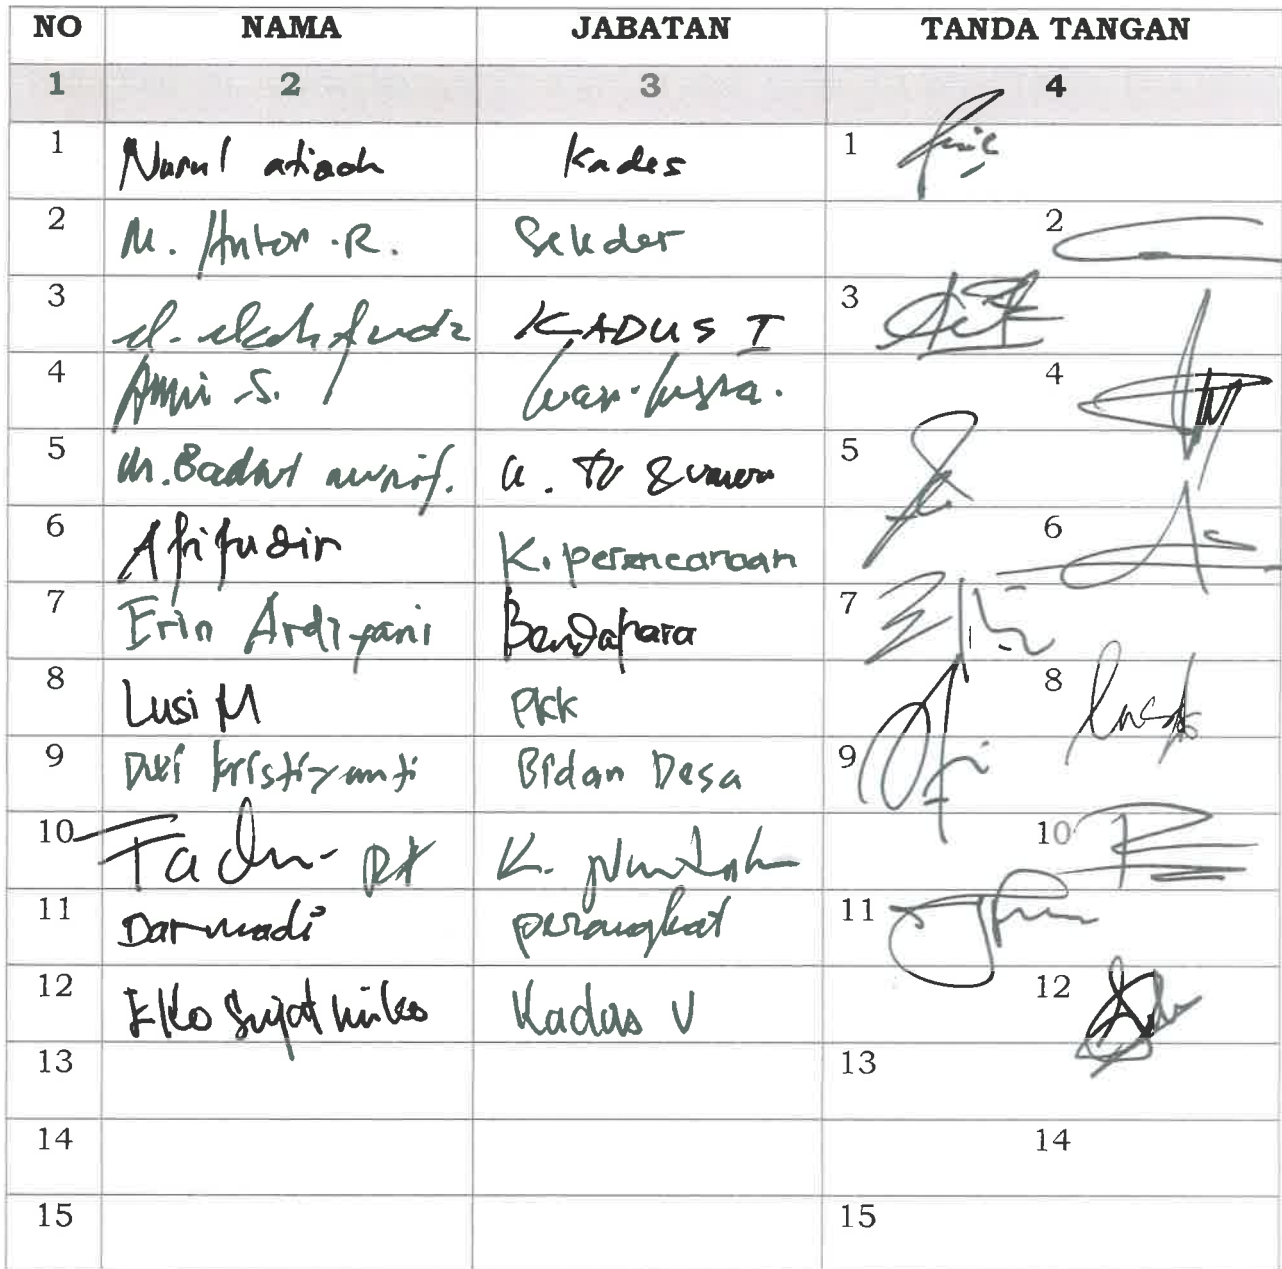 NO NAMA JABATAN TANDA TANGAN
1 2 3 4
1 Nurul atiach Kades 1
2 M. Anton .R. Sekder 2
3 KADUS I 3
4 Amin S. 4
5 M. Badrul 5
6 Afifudin K. perencanaan 6
7 Erin Ardiyani Bendahara 7
8 Lusi M PKK 8
9 Dwi Kristiyanti Bidan Desa 9
10 K. 10
11 Darmadi perangkat 11
12 Eko Sujatmiko Kadus V 12
13 13
14 14
15 15